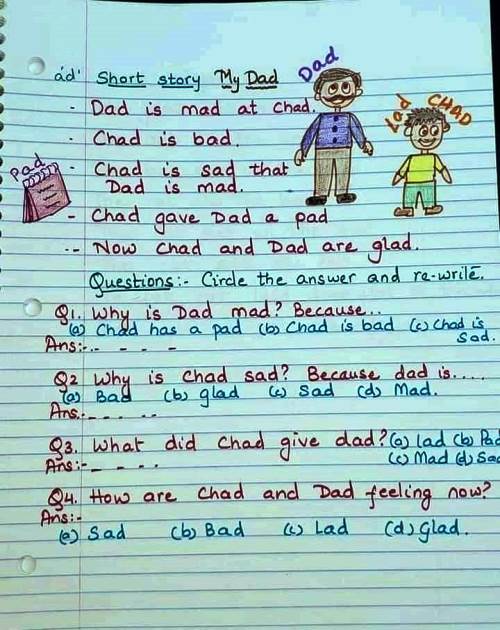 'ad' Short story My Dad
Dad
Lad CHAD
- Dad is mad at Chad.
- Chad is bad.
Pad
- Chad is sad that
Dad is mad.
- Chad gave Dad a pad
-- Now Chad and Dad are glad.
Questions:- Circle the answer and re-write.
Q1. Why is Dad mad? Because..
(a) Chad has a pad (b) Chad is bad (c) Chad is
Sad.
Ans:-. - - -
Q2 Why is Chad sad? Because dad is.....
(a) Bad (b) glad (c) Sad (d) Mad.
Ans:- - - . .
Q3. What did Chad give dad? (a) lad (b) Pad
Ans:- - - . . (c) Mad (d) Sad
Q4. How are Chad and Dad feeling now?
Ans:-
(a) Sad (b) Bad (c) Lad (d) Glad.